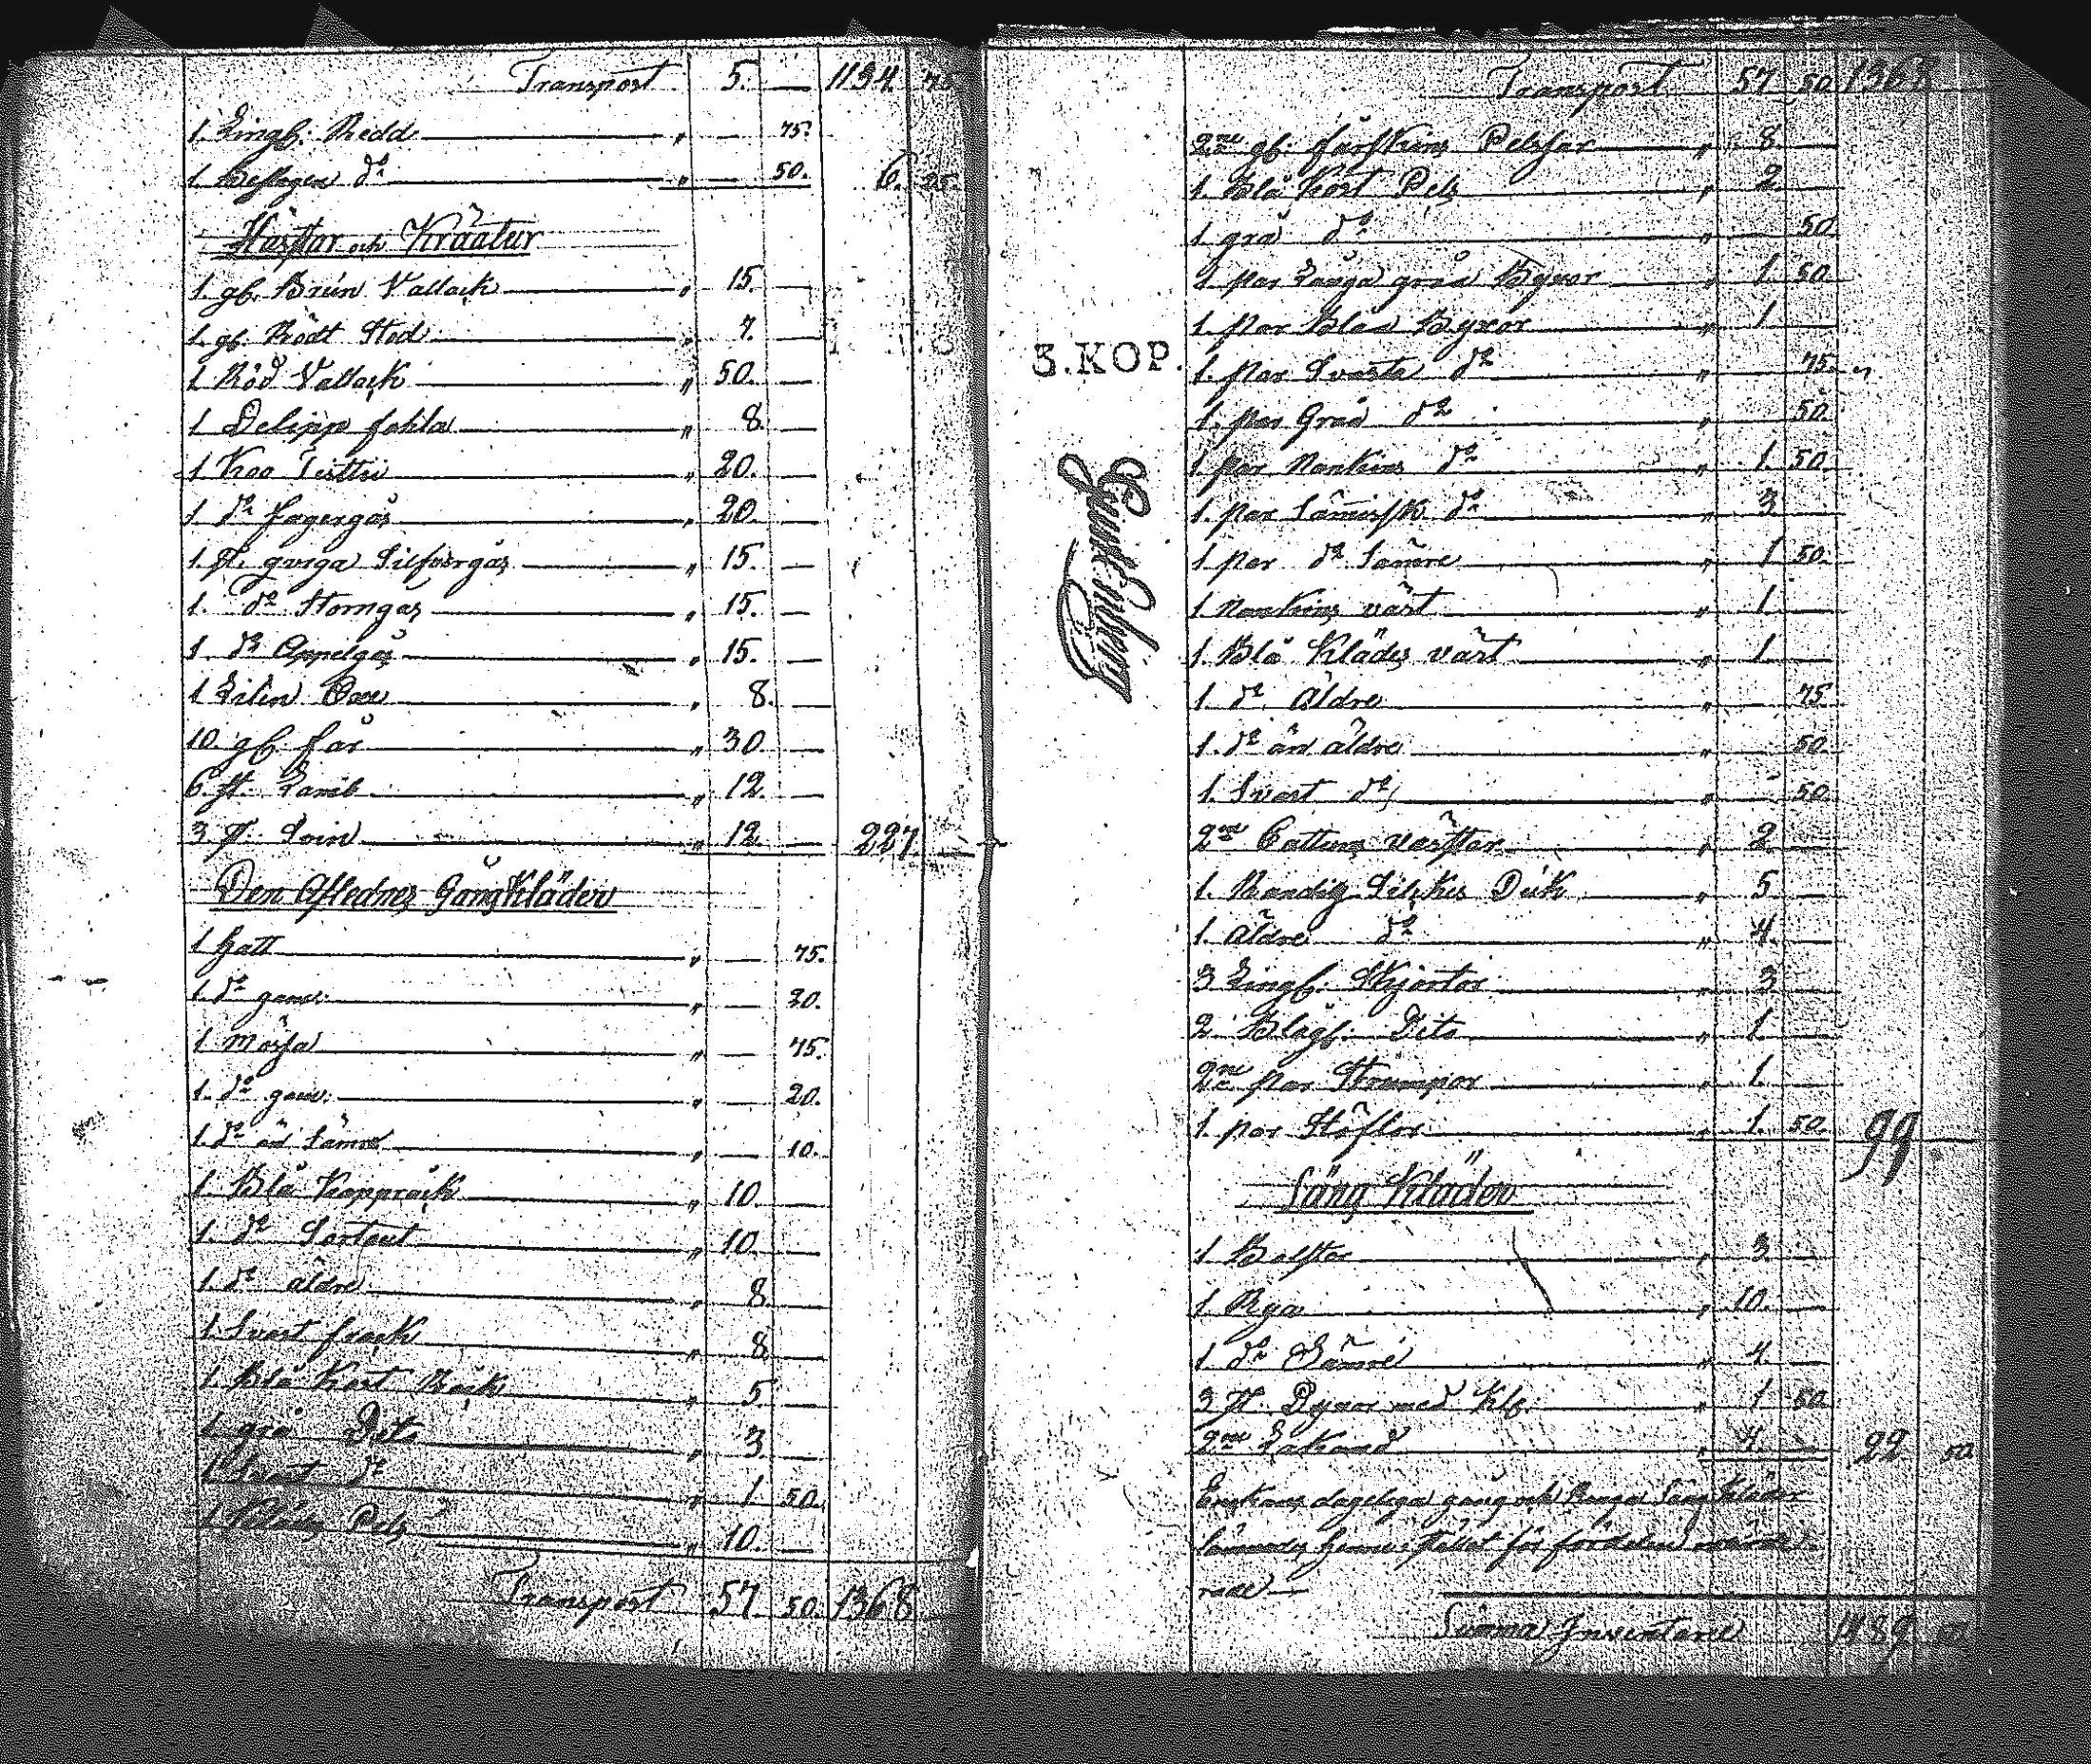 Transport 5. — 1134. 75.
1 Lingf: Redd " — 75.
1 Beslagen do " — 50. 6. 25.
Hästar och Kräatur
1. gb. Brun Vallack " 15. —
1. gb. Rödt Stod " 7. —
1 Röd Vallack " 50. —
1 fohla " 8. —
1 Koo " 20. —
1 do Fagergås " 20. —
1. st. qviga Silfvergås " 15. —
1. do Storngås " 15. —
1. do Appelgås " 15. —
1 Liten Oxe " 8. —
10. gb. får " 30. —
6 st. Lamb " 12. —
3 st. Svin " 12. — 227. —
Den Aflednes GångKläder
1 hatt " — 75.
1. do gamel " — 20.
1 Mössa " — 75.
1. do gam: " — 20.
1. do än Sämre " — 10.
1 Blå Kappråck " 10. —
1. do Sortout " 10. —
1. do äldre " 8. —
1. Svart frack " 8. —
1 Blå Kort Råck " 5. —
1. grå Dito " 3. —
1 Svart do " 1 50.
1 Klädes Pels " 10. —
Transport 57 50. 1368.
Transport 57 50 1368
2ne gb. fårskins Pelsar " 8. —
1. Blå Kort Pels " 2 —
1. grå do " 50
1 par Långa gråa Byxor " 1. 50.
1. par Blåa Byxor " 1 —
3.KOP.
1. par Svarta do " 75.
1. par Gråa do " 50.
1. par Nankins do " 1. 50.
1. par Sämisk do " 3 —
1 par do Sämre " 1 50.
1 Nankins väst " 1. —
1 Blå Klädes väst " 1. —
1. do Äldre " — 75.
1. do än äldre " — 50.
1. Svart do " — 50.
2ne Cattuns västar " 2. —
1. Randig Silkes Duk " 5 —
1. Äldre do " 4. —
3 Lingf: Skjortor " 3 —
2. Blågf: Dito " 1. —
2ne par Strumpor " 1. —
1. par Stöflor " 1. 50. 99
Säng Kläder
1 Bolster " 3 —
1 Rya " 10. —
1 do Sämre " 4. —
3 st. Dynor med " 1 50.
2ne Lakand " 4 — 22 50
Enkans dageliga gång och Ringa Säng Kläder
lämnades henne i stället för fördelen
Summa Inventarie 1489 50